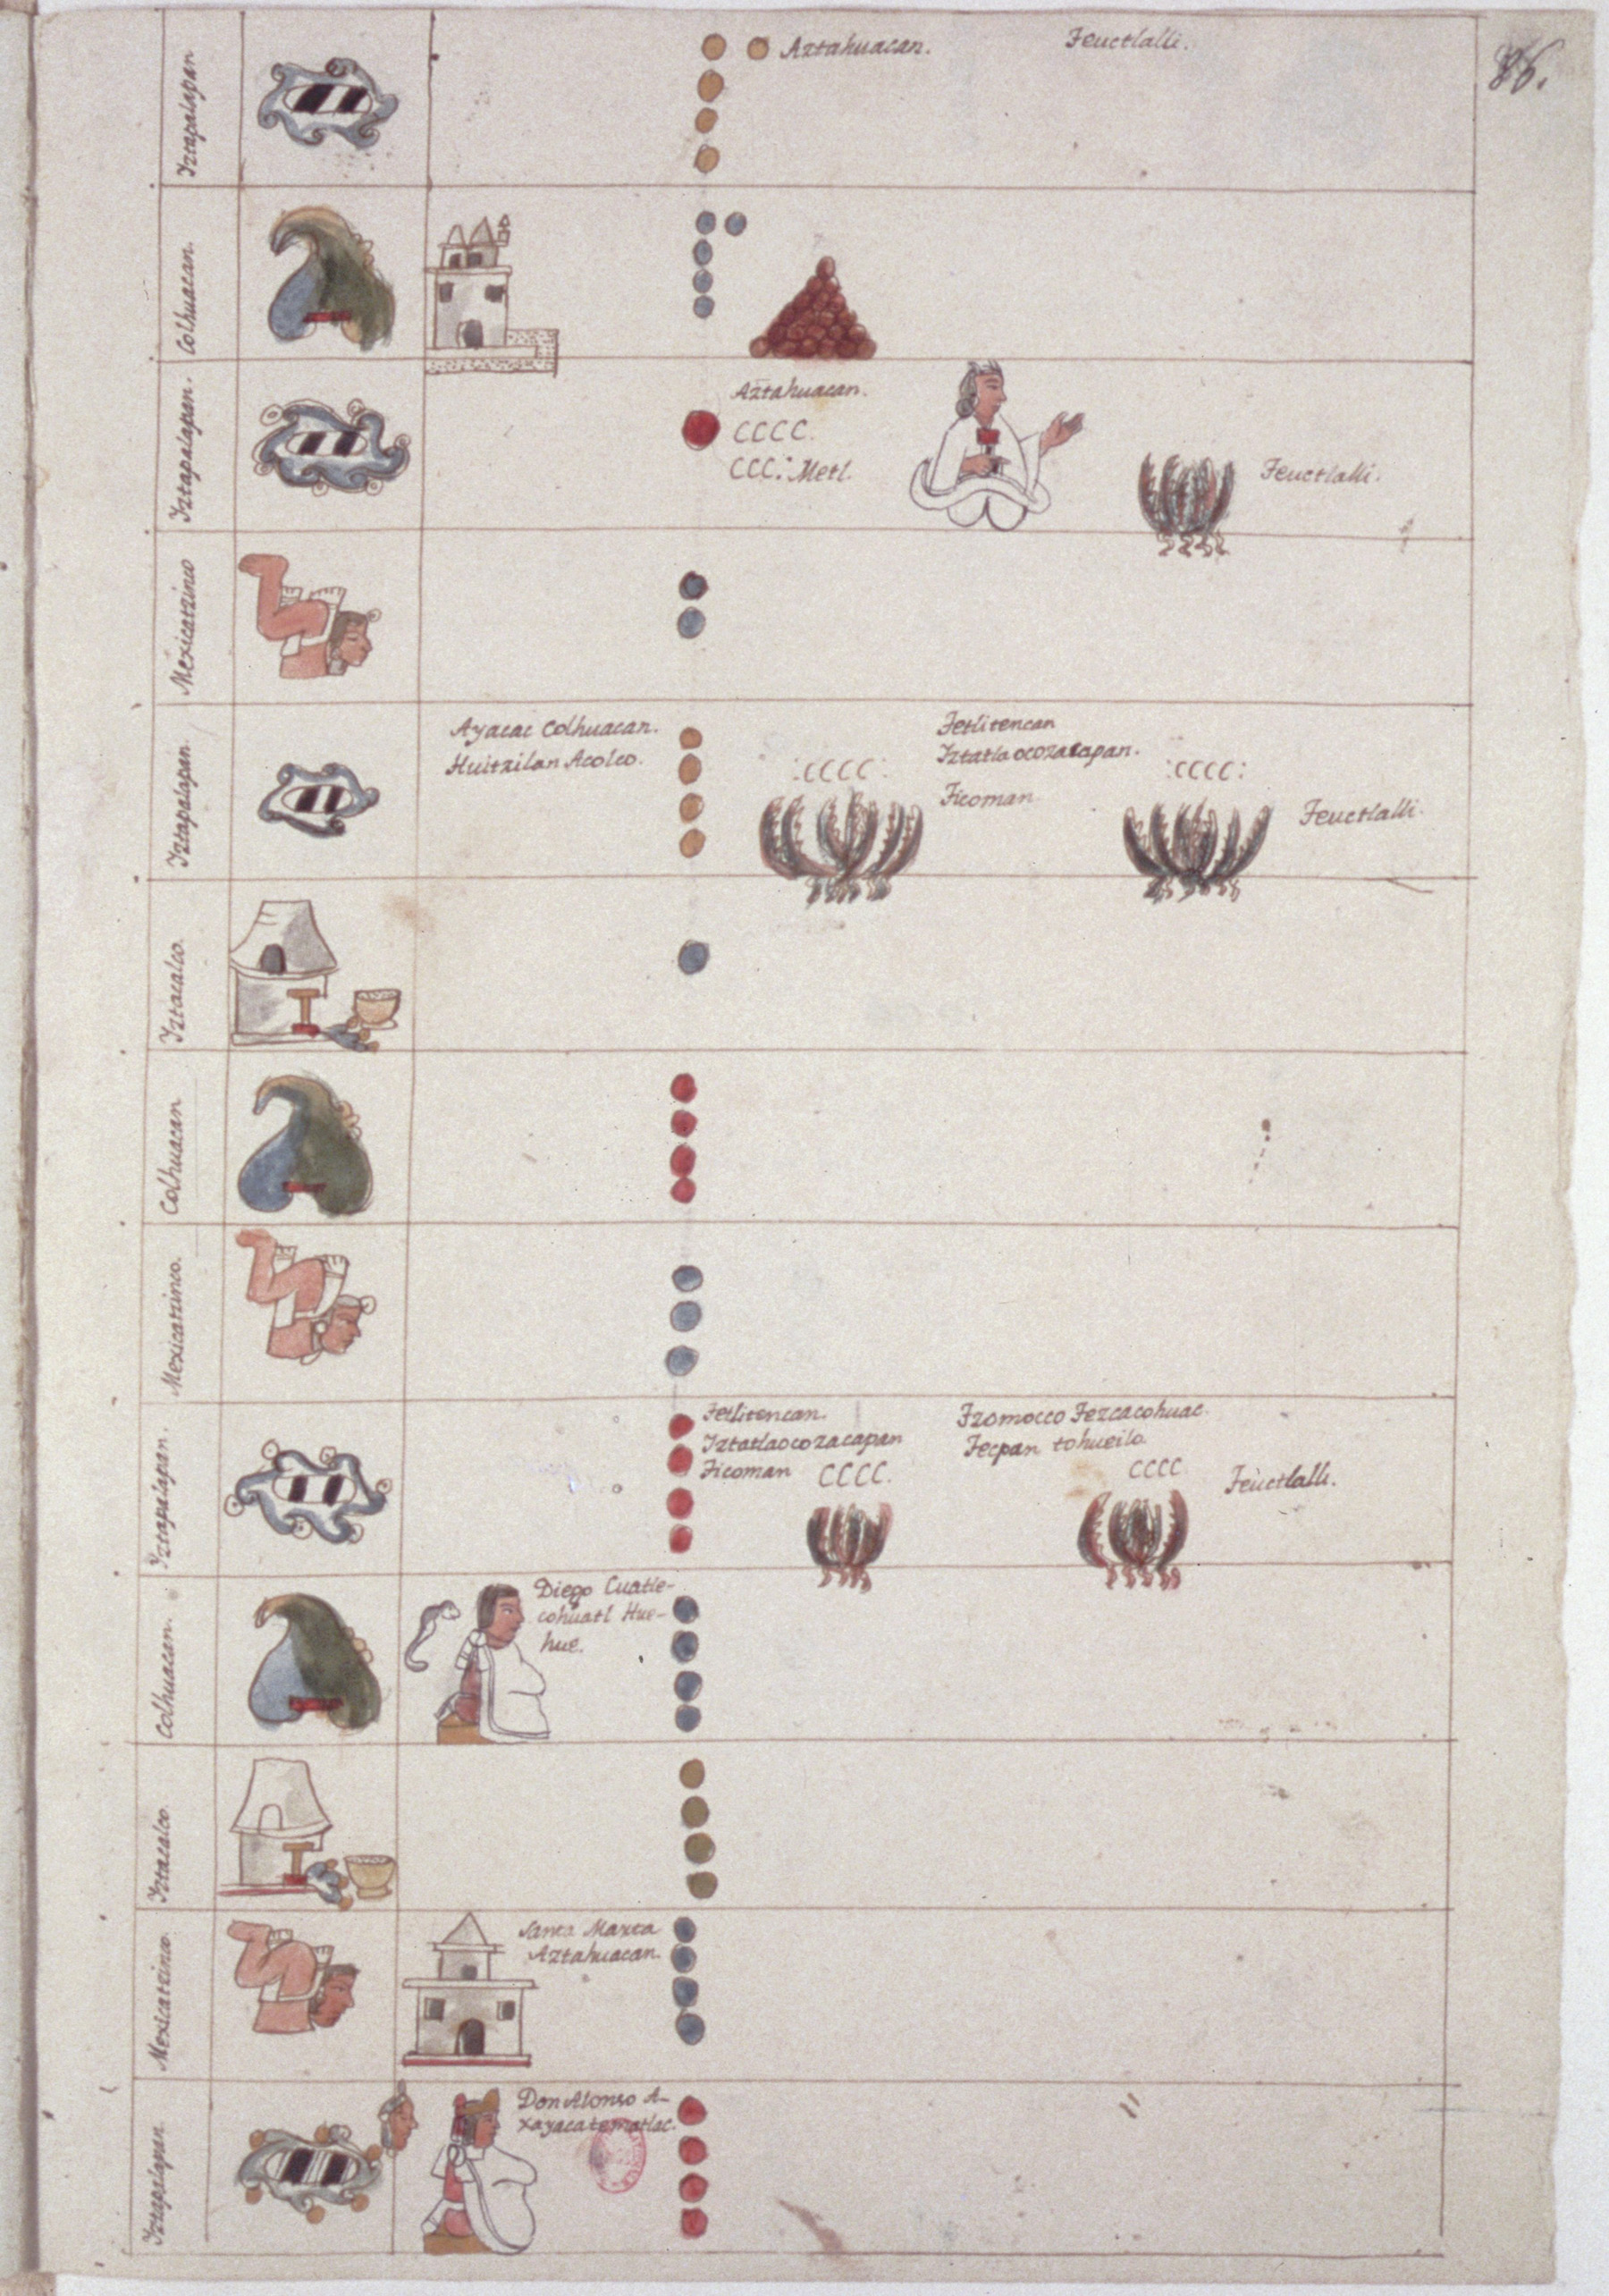 86.
Iztapalapan
Aztahuacan.
Teuctlalli.
Colhuacan.
Iztapalapan.
Aztahuacan.
CCCC.
CCC: Metl.
Teuctlalli.
Mexicatzinco
Iztapalapan.
Ayacac Colhuacan.
Huitzilan Acolco.
:CCCC:
Tetlitencan
Iztatlaocozacapan.
Ticoman
:CCCC:
Teuctlalli.
Iztacalco.
Colhuacan
Mexicatzinco.
Iztapalapan.
Tetlitencan.
Iztatlaocozacapan
Ticoman CCCC.
Tzomocco Tezcacohuac.
Tecpan tohueilo
CCCC
Teuctlalli.
Colhuacan.
Diego Cuatle-
cohuatl Hue-
hue.
Iztacalco.
Mexicatzinco.
Santa Marta
Aztahuacan.
Iztapalapan.
Don Alonso A-
xayaca